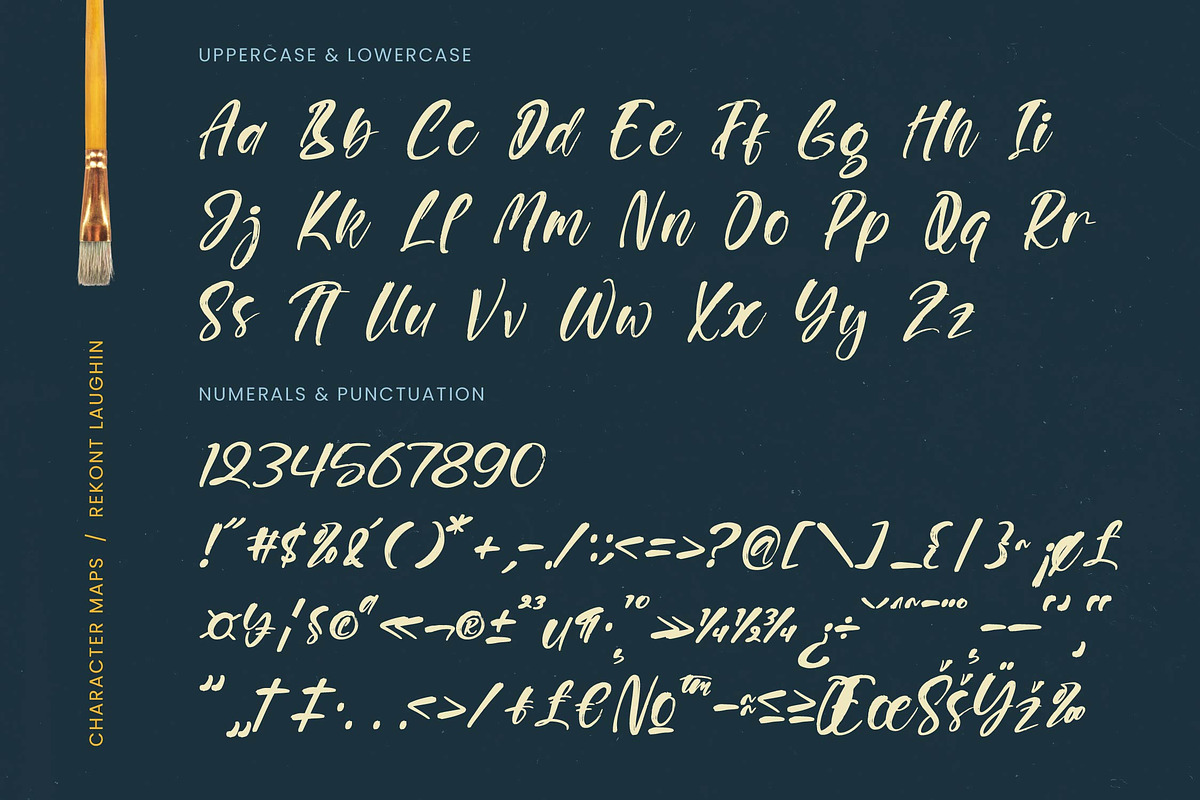 UPPERCASE & LOWERCASE
Aa Bb Cc Dd Ee Ff Gg Hh Ii
Jj Kk Ll Mm Nn Oo Pp Qq Rr
Ss Tt Uu Vv Ww Xx Yy Zz
NUMERALS & PUNCTUATION
1234567890
!"#$%&'()*+,-./:;<=>?@[\]_{|}~¡¢£
¤¥¦§©ª«¬®±²³µ¶·¸¹º»¼½¾¿÷ˇˆ˜¯˙¨…–—‘’“‚
”„†‡·...<>/₣£€№™−≈≤≥ŒœŠšŸž‰
CHARACTER MAPS / REKONT LAUGHIN